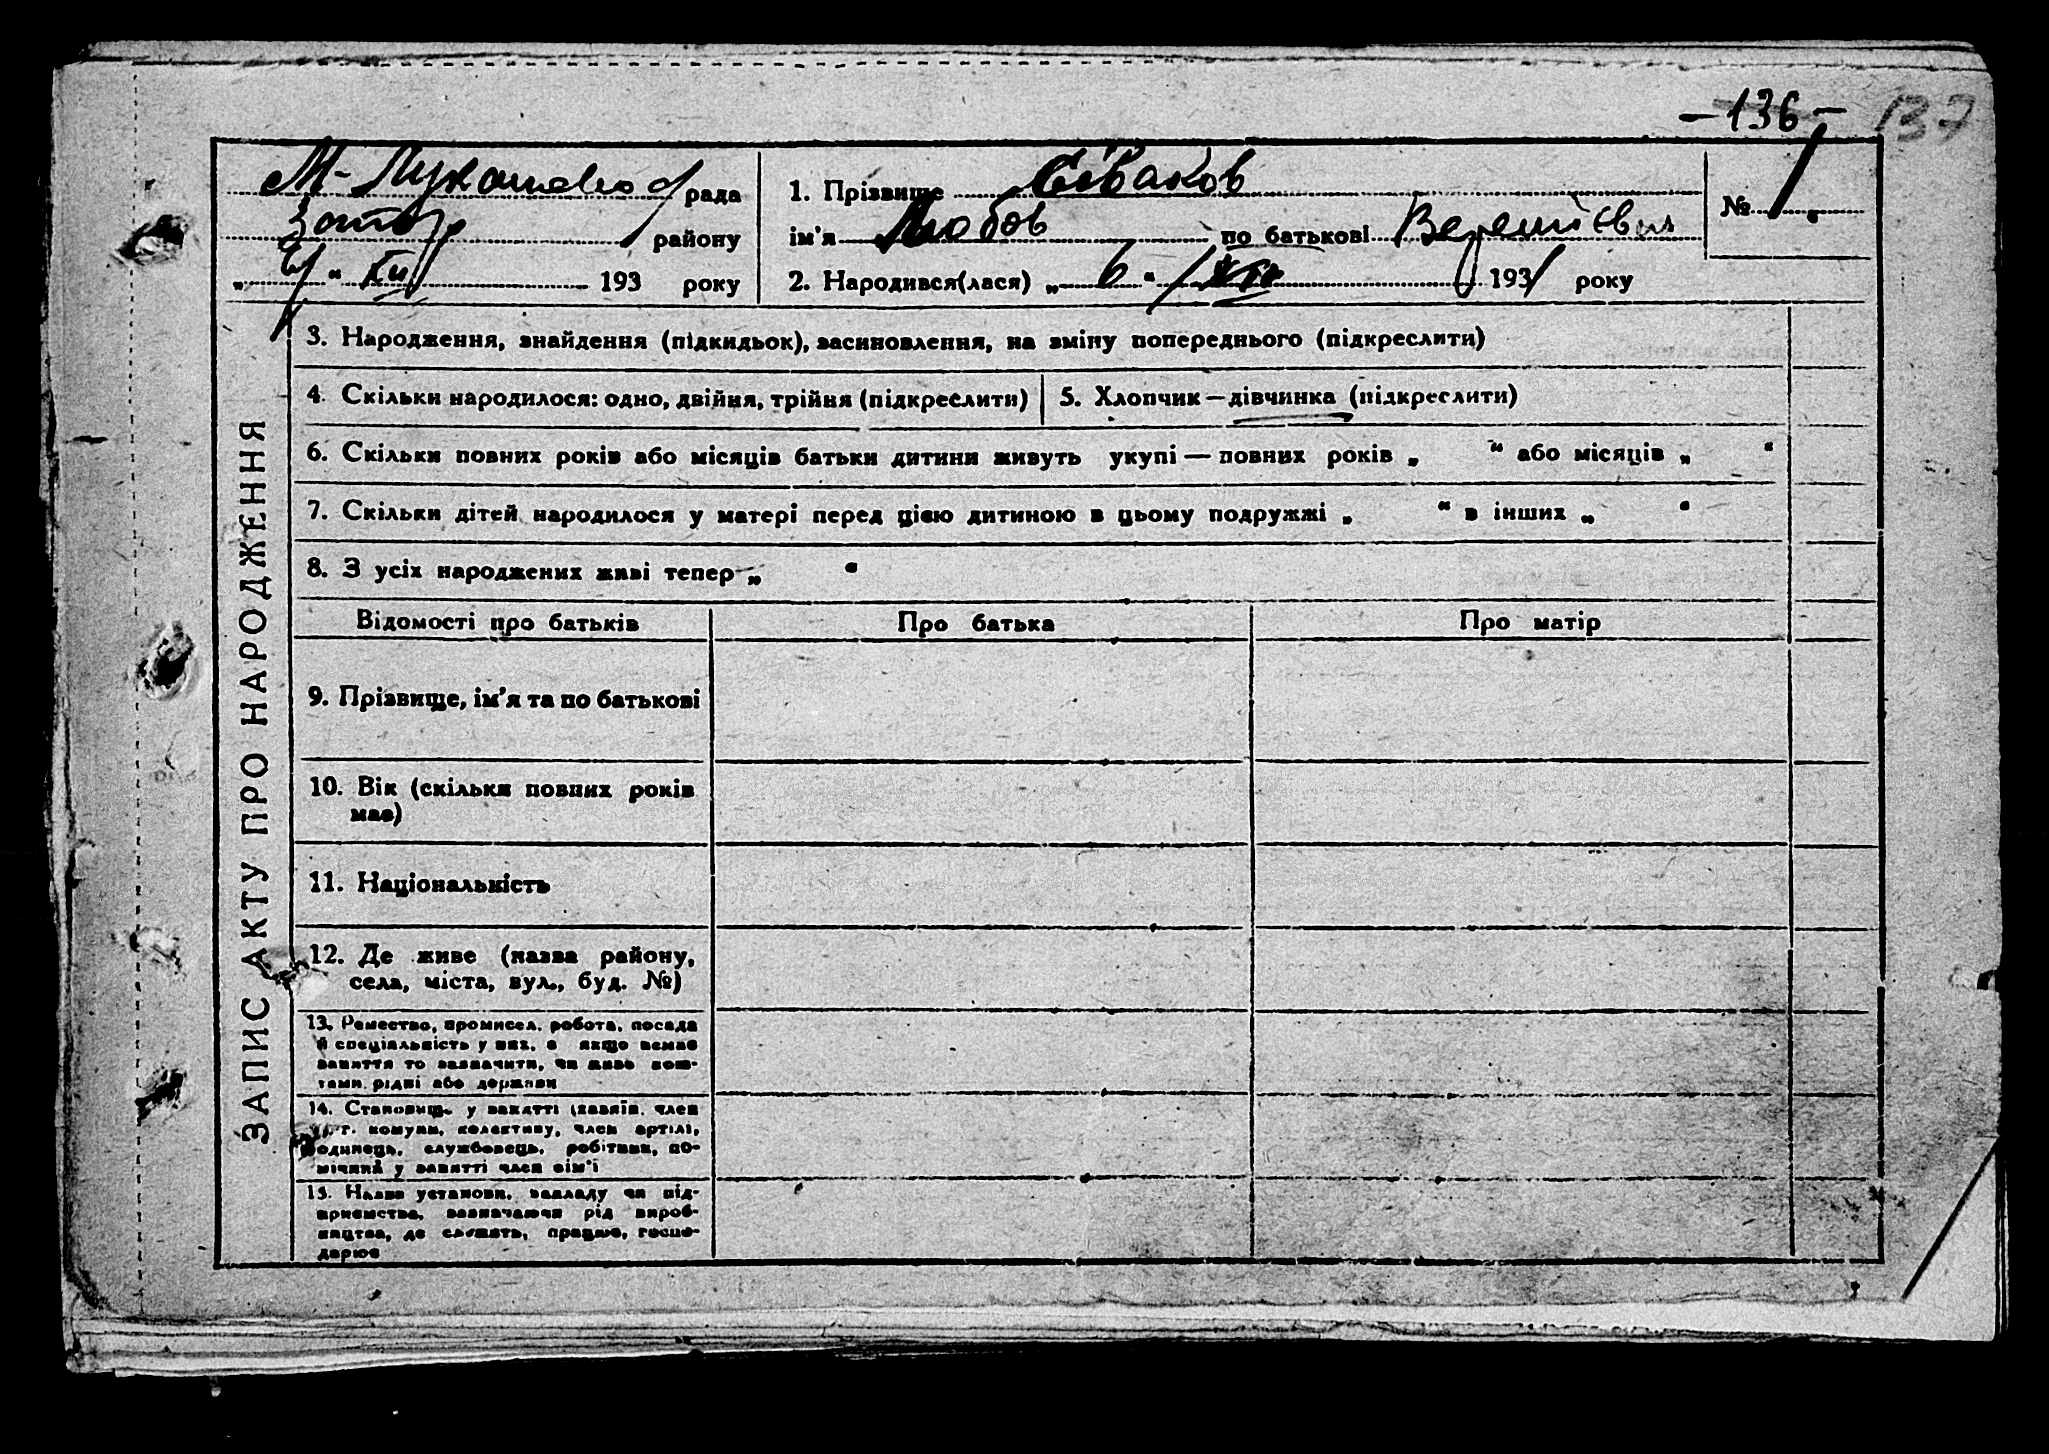 — 136 — 137
М-Лукашево рада
району
„ “ XII 193 року
1. Прізвище
ім'я Любов по батькові
2. Народився(лася) „ 6 “ XII 1931 року
№ 1
ЗАПИС АКТУ ПРО НАРОДЖЕННЯ
3. Народження, знайдення (підкидьок), засиновлення, на зміну попереднього (підкреслити)
4. Скільки народилося: одно, двійня, трійня (підкреслити)
5. Хлопчик — дівчинка (підкреслити)
6. Скільки повних років або місяців батьки дитини живуть укупі — повних років „ “ або місяців „ “
7. Скільки дітей народилося у матері перед цією дитиною в цьому подружжі „ “ в інших „ “
8. З усіх народжених живі тепер „ “
Відомості про батьків Про батька Про матір
9. Прізвище, ім'я та по батькові
10. Вік (скільки повних років
має)
11. Національність
12. Де живе (назва району,
села, міста, вул., буд. №)
13. Ремество, промисел, робота, посада
й спеціяльність у них, а якщо немає
заняття то зазначити, чи живе кош-
тами рідні або держави
14. Становище у занятті (хазяїн, член
комуни, колективу, член артілі,
одинець, службовець, робітник, по-
мічний у занятті член сім'ї
15. Назва установи, закладу чи під-
приємства, зазначаючи рід вироб-
ництва, де служить, працює, госпо-
дарює